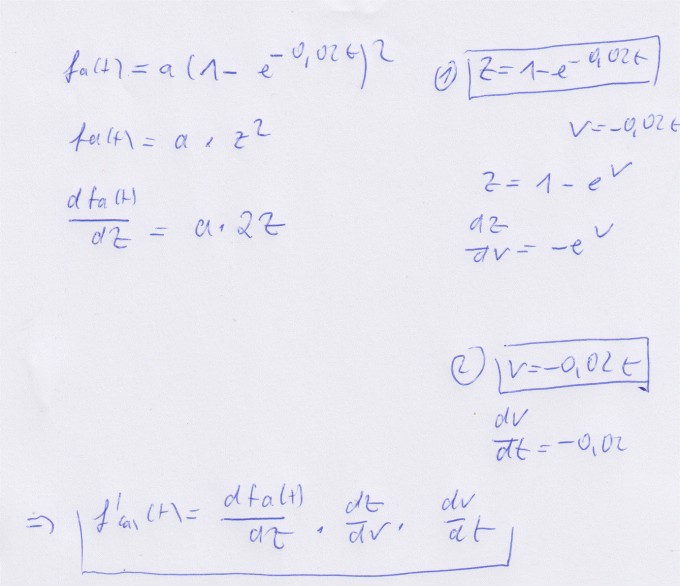 fa(t) = a (1 - e^-0,02t)^2
① z = 1 - e^-0,02t
v = -0,02t
fa(t) = a · z^2
z = 1 - e^v
dfa(t)/dz = a · 2z
dz/dv = -e^v
② v = -0,02t
dv/dt = -0,02
⇒ f'(a)(t) = dfa(t)/dz · dz/dv · dv/dt